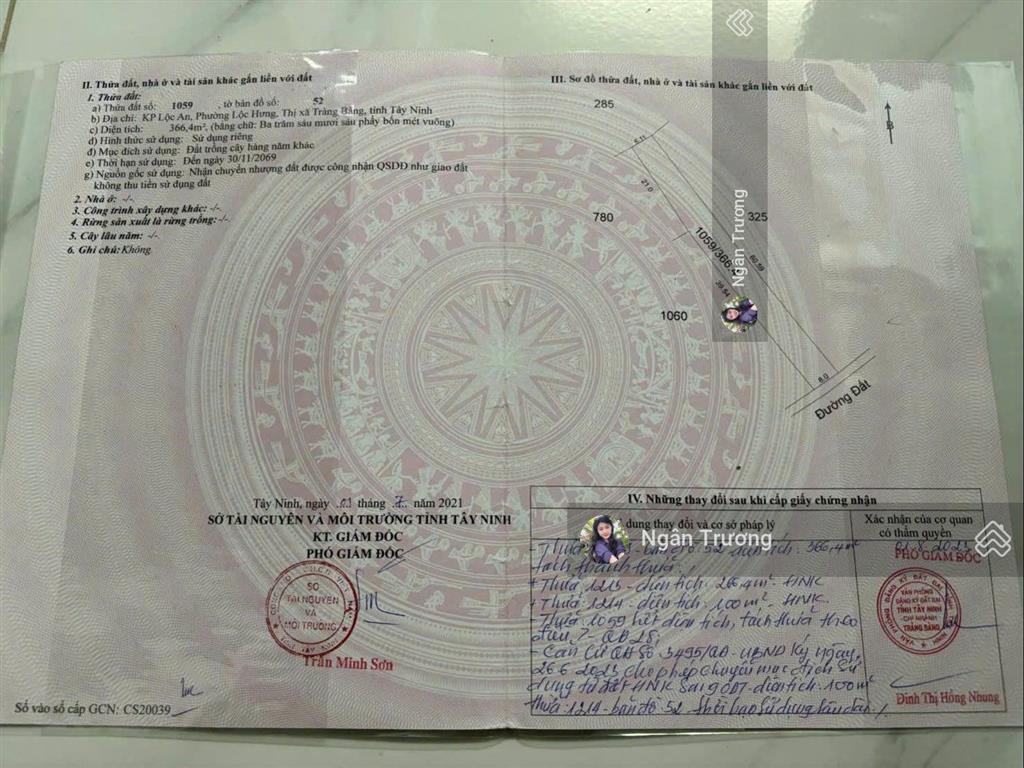 II. Thửa đất, nhà ở và tài sản khác gắn liền với đất
1. Thửa đất:
a) Thửa đất số: 1059 , tờ bản đồ số: 52
b) Địa chỉ: KP Lộc An, Phường Lộc Hưng, Thị xã Trảng Bàng, tỉnh Tây Ninh
c) Diện tích: 366,4m², (bằng chữ: Ba trăm sáu mươi sáu phẩy bốn mét vuông)
d) Hình thức sử dụng: Sử dụng riêng
đ) Mục đích sử dụng: Đất trồng cây hàng năm khác
e) Thời hạn sử dụng: Đến ngày 30/11/2069
g) Nguồn gốc sử dụng: Nhận chuyển nhượng đất được công nhận QSDĐ như giao đất
không thu tiền sử dụng đất
2. Nhà ở: -/-
3. Công trình xây dựng khác: -/-
4. Rừng sản xuất là rừng trồng: -/-
5. Cây lâu năm: -/-
6. Ghi chú: Không
Tây Ninh, ngày 01 tháng 7 năm 2021
SỞ TÀI NGUYÊN VÀ MÔI TRƯỜNG TỈNH TÂY NINH
KT. GIÁM ĐỐC
PHÓ GIÁM ĐỐC
SỞ
TÀI NGUYÊN
VÀ
MÔI TRƯỜNG
Trần Minh Sơn
Số vào sổ cấp GCN: CS20039
III. Sơ đồ thửa đất, nhà ở và tài sản khác gắn liền với đất
285
B
6.11
21.0
780
325
1059/366.4
60.59
39.54
1060
6.0
Đường Đất
Ngân Trương
IV. Những thay đổi sau khi cấp giấy chứng nhận
dung thay đổi và cơ sở pháp lý
Xác nhận của cơ quan
có thẩm quyền
Ngân Trương
- Thửa bản đồ 52 diện tích: 366,4m²
tách thành thửa:
+ Thửa 1213 - diện tích: 266,4m² HNK
+ Thửa: 1214 - diện tích: 100m² - HNK.
- Thửa 1059 hết diện tích, tách thửa theo
- Căn cứ QĐ số 3495/QĐ-UBND ký ngày
26.6.2023 cho phép chuyển mục đích sử
dụng từ đất HNK sang ODT - diện tích: 100m²
thửa: 1214 - bản đồ: 52 thời hạn sử dụng lâu dài
01.8.2023
PHÓ GIÁM ĐỐC
VĂN PHÒNG
ĐĂNG KÝ ĐẤT ĐAI
TỈNH TÂY NINH
CHI NHÁNH
TRẢNG BÀNG
Đinh Thị Hồng Nhung